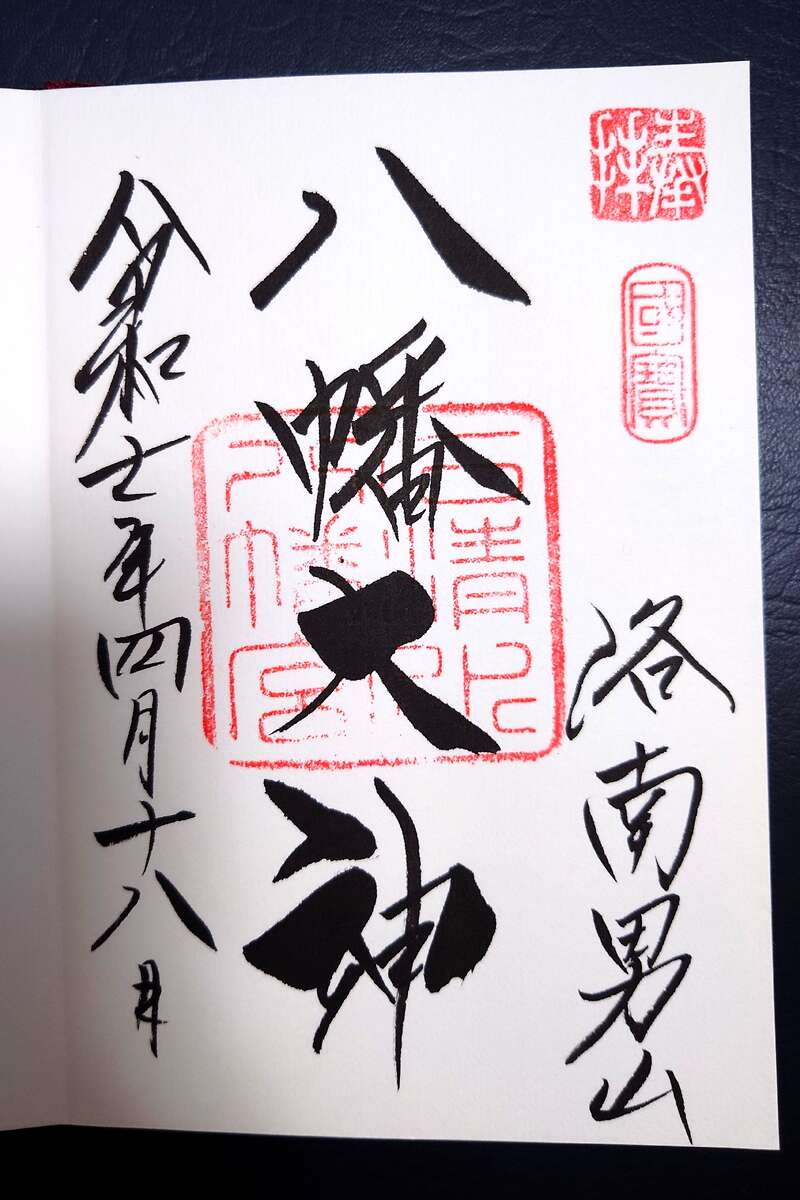 奉拝
國寶
洛南男山
八幡大神
石清水
八幡宮
令和七年四月十八日